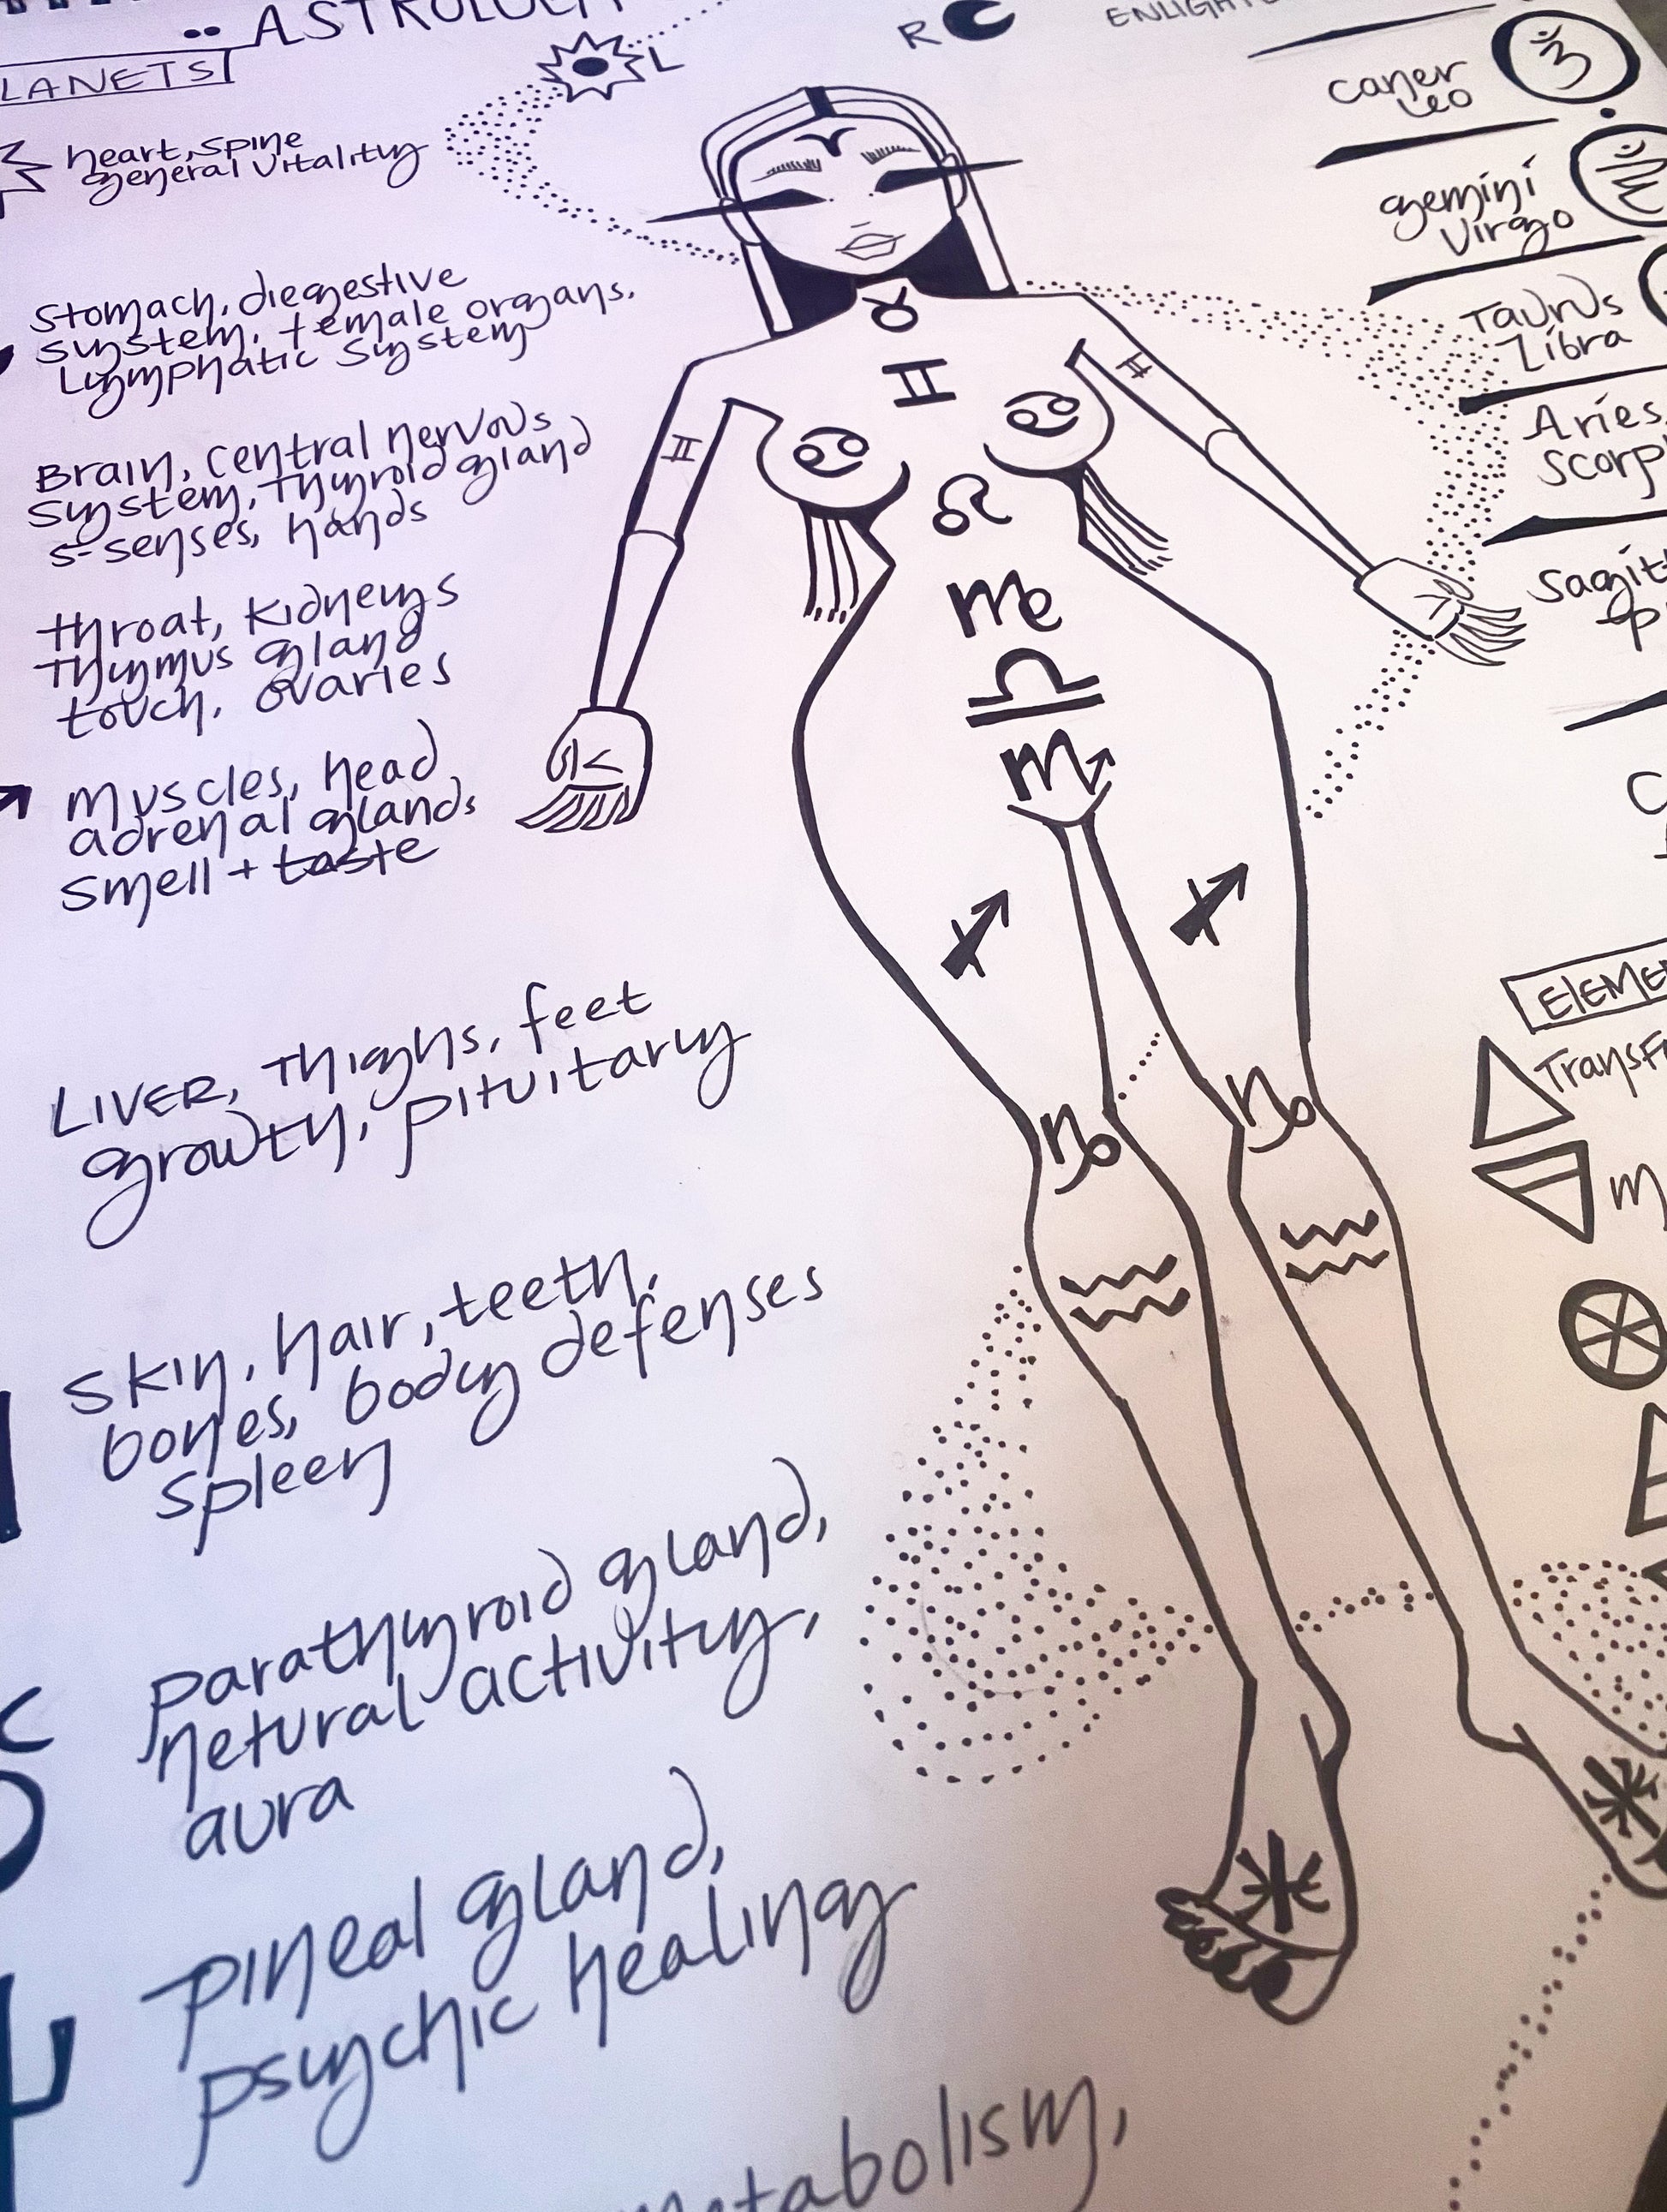 ASTROLOGY
LANETS
L
R
heart, spine
general vitality
Stomach, diegestive
system, female organs.
Lymphatic System
Brain, central nervous
system, thyroid gland
5-senses, hands
throat, kidneys
Thymus gland
touch, ovaries
muscles, head
adrenal glands
smell + taste
LIVER, Thighs, feet
growth, pituitary
Skin, hair, teeth,
bones, body defenses
spleen
parathyroid gland,
netural activity,
aura
pineal gland,
psychic healing
metabolism,
♉
♊
♊ ♊
♋ ♋
♌
♍
♎
♏
♐ ♐
♑ ♑
♒ ♒
ENLIGHT
caner
Leo
ॐ
gemini
Virgo
Taurus
Libra
Aries,
Scorp
Sagit
P
C
ELEME
Transf
m